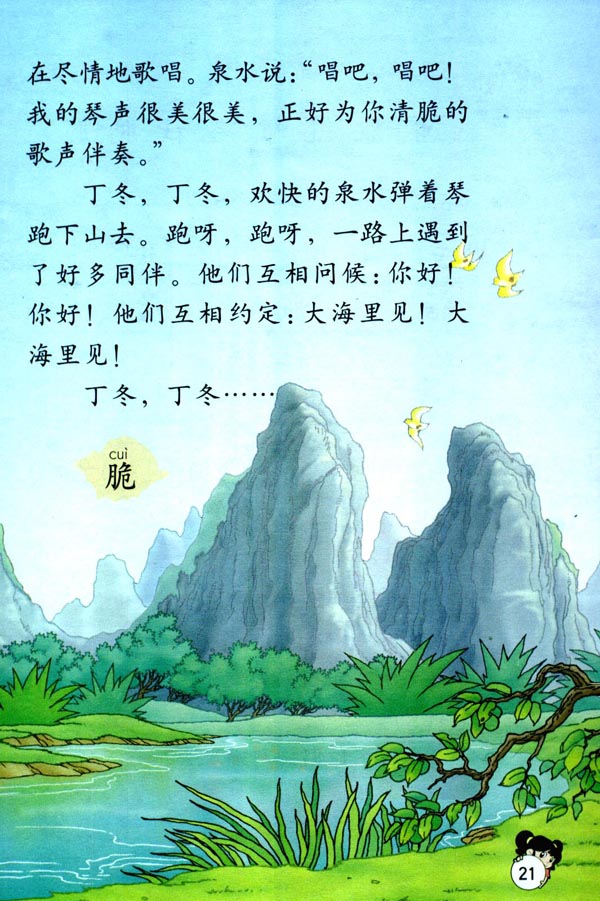 在尽情地歌唱。泉水说：“唱吧，唱吧！
我的琴声很美很美，正好为你清脆的
歌声伴奏。”
丁冬，丁冬，欢快的泉水弹着琴
跑下山去。跑呀，跑呀，一路上遇到
了好多同伴。他们互相问候：你好！
你好！他们互相约定：大海里见！大
海里见！
丁冬，丁冬……
cuì
脆
21